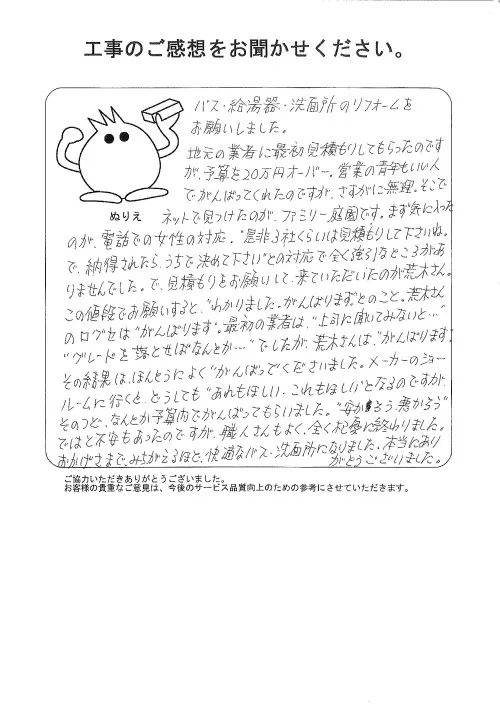 工事のご感想をお聞かせください。
バス・給湯器・洗面所のリフォームを
お願いしました。
地元の業者に最初見積もりしてもらったのです
が、予算を20万円オーバー。営業の青年もいい人
でがんばってくれたのですが、さすがに無理。そこで
ぬりえ
ネットで見つけたのが、ファミリー庭園です。まず気に入った
のが、電話での女性の対応。"是非3社くらいは見積もりして下さいね。
で、納得されたら、うちで決めて下さい"との対応で全く強引なところがあ
りませんでした。で、見積もりをお願いして、来ていただいたのが荒木さん。
この値段でお願いすると、"わかりました。がんばります"とのこと。荒木さん
のログセは"がんばります"。最初の業者は、"上司に聞いてみないと…"
"グレードを落とせばなんとか…"でしたが、荒木さんは、"がんばります"。
その結果は、ほんとうによく"がんばって"くださいました。メーカーのショー
ルームに行くと、どうしても"あれもほしい、これもほしい"となるのですが、
そのつど、なんとか予算内でがんばってもらいました。"安かろう、悪かろう"
ではと不安もあったのですが、職人さんもよく、全く杞憂に終わりました。
おかげさまで、みちがえるほど、快適なバス・洗面所になりました。本当にあり
がとうございました。
ご協力いただきありがとうございました。
お客様の貴重なご意見は、今後のサービス品質向上のための参考にさせていただきます。